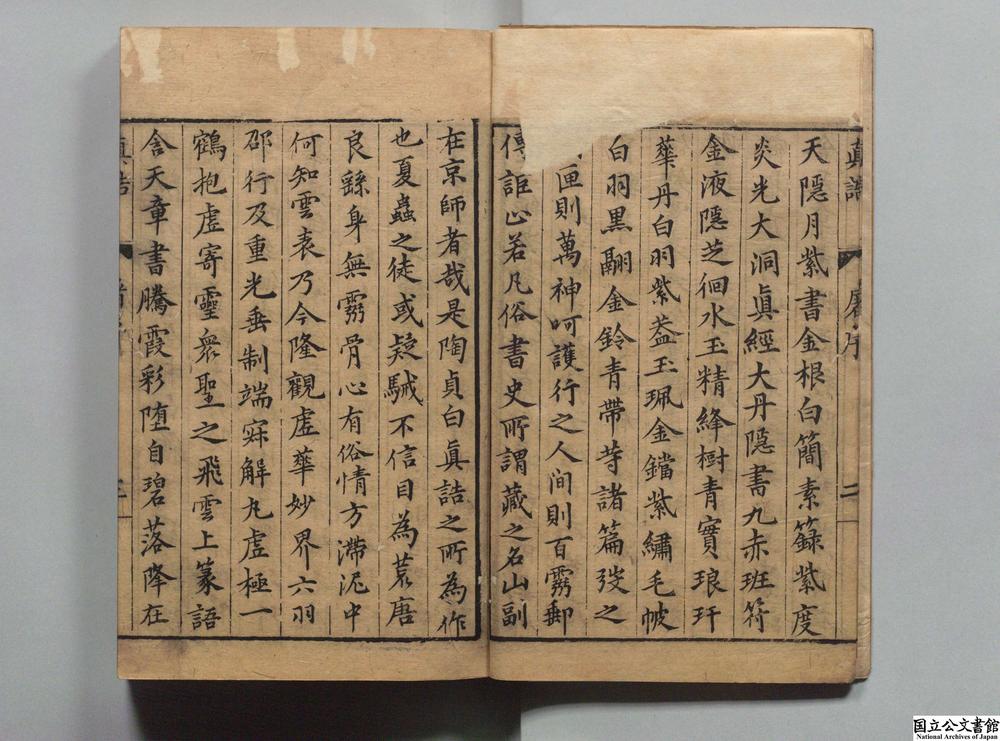 真誥 序 二
天隱月紫書金根白簡素籙紫度
炎光大洞眞經大丹隱書九赤班符
金液隱芝徊水玉精絳樹青實琅玕
華丹白羽紫蓋玉珮金鐺紫繡毛帔
白羽黑翮金鈴青帶䒭諸篇弢之
匣則萬神呵護行之人间則百靈郵
傳詎止若凡俗書史所謂藏之名山副
在京師者哉是陶貞白眞誥之所為作
也夏蟲之徒或疑駴不信目為荒唐
良繇身無靈骨心有俗情方滯泥中
何知雲表乃今隆觀虛華妙界六羽
邵行及重光垂制端寀解九虛極一
鶴抱虛寄靈衆聖之飛雲上篆語
含天章書騰霞彩堕自碧落降在
真誥
国立公文書館
National Archives of Japan